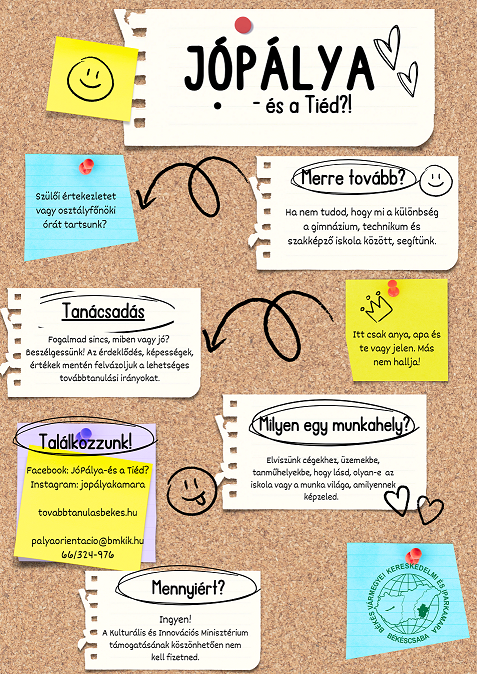 JÓPÁLYA
- és a Tiéd?!
Merre tovább?
Ha nem tudod, hogy mi a különbség
a gimnázium, technikum és
szakképző iskola között, segítünk.
Szülői értekezletet
vagy osztályfőnöki
órát tartsunk?
Tanácsadás
Fogalmad sincs, miben vagy jó?
Beszélgessünk! Az érdeklődés, képességek,
értékek mentén felvázoljuk a lehetséges
továbbtanulási irányokat.
Itt csak anya, apa és
te vagy jelen. Más
nem hallja!
Milyen egy munkahely?
Elviszünk cégekhez, üzemekbe,
tanműhelyekbe, hogy lásd, olyan-e az
iskola vagy a munka világa, amilyennek
képzeled.
Találkozzunk!
Facebook: JóPálya-és a Tiéd?
Instagram: jopalyakamara
tovabbtanulasbekes.hu
palyaorientacio@bmkik.hu
66/324-976
Mennyiért?
Ingyen!
A Kulturális és Innovációs Minisztérium
támogatásának köszönhetően nem
kell fizetned.
BÉKÉS VÁRMEGYEI KERESKEDELMI ÉS IPARKAMARA
BÉKÉSCSABA